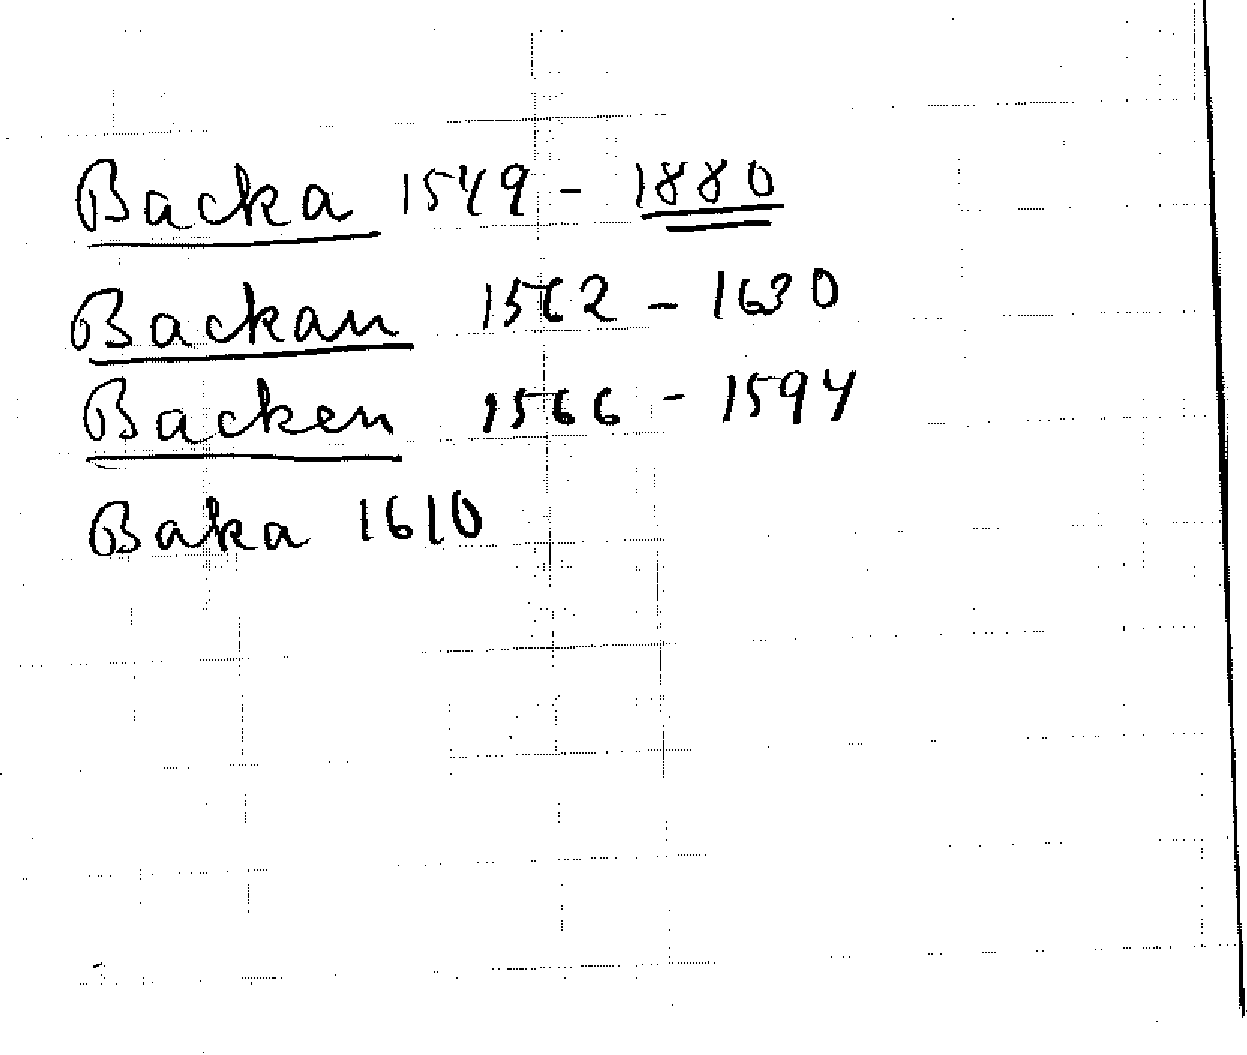 Backa 1549 - 1880
Backan 1562 - 1630
Backen 1566 - 1594
Baka 1610